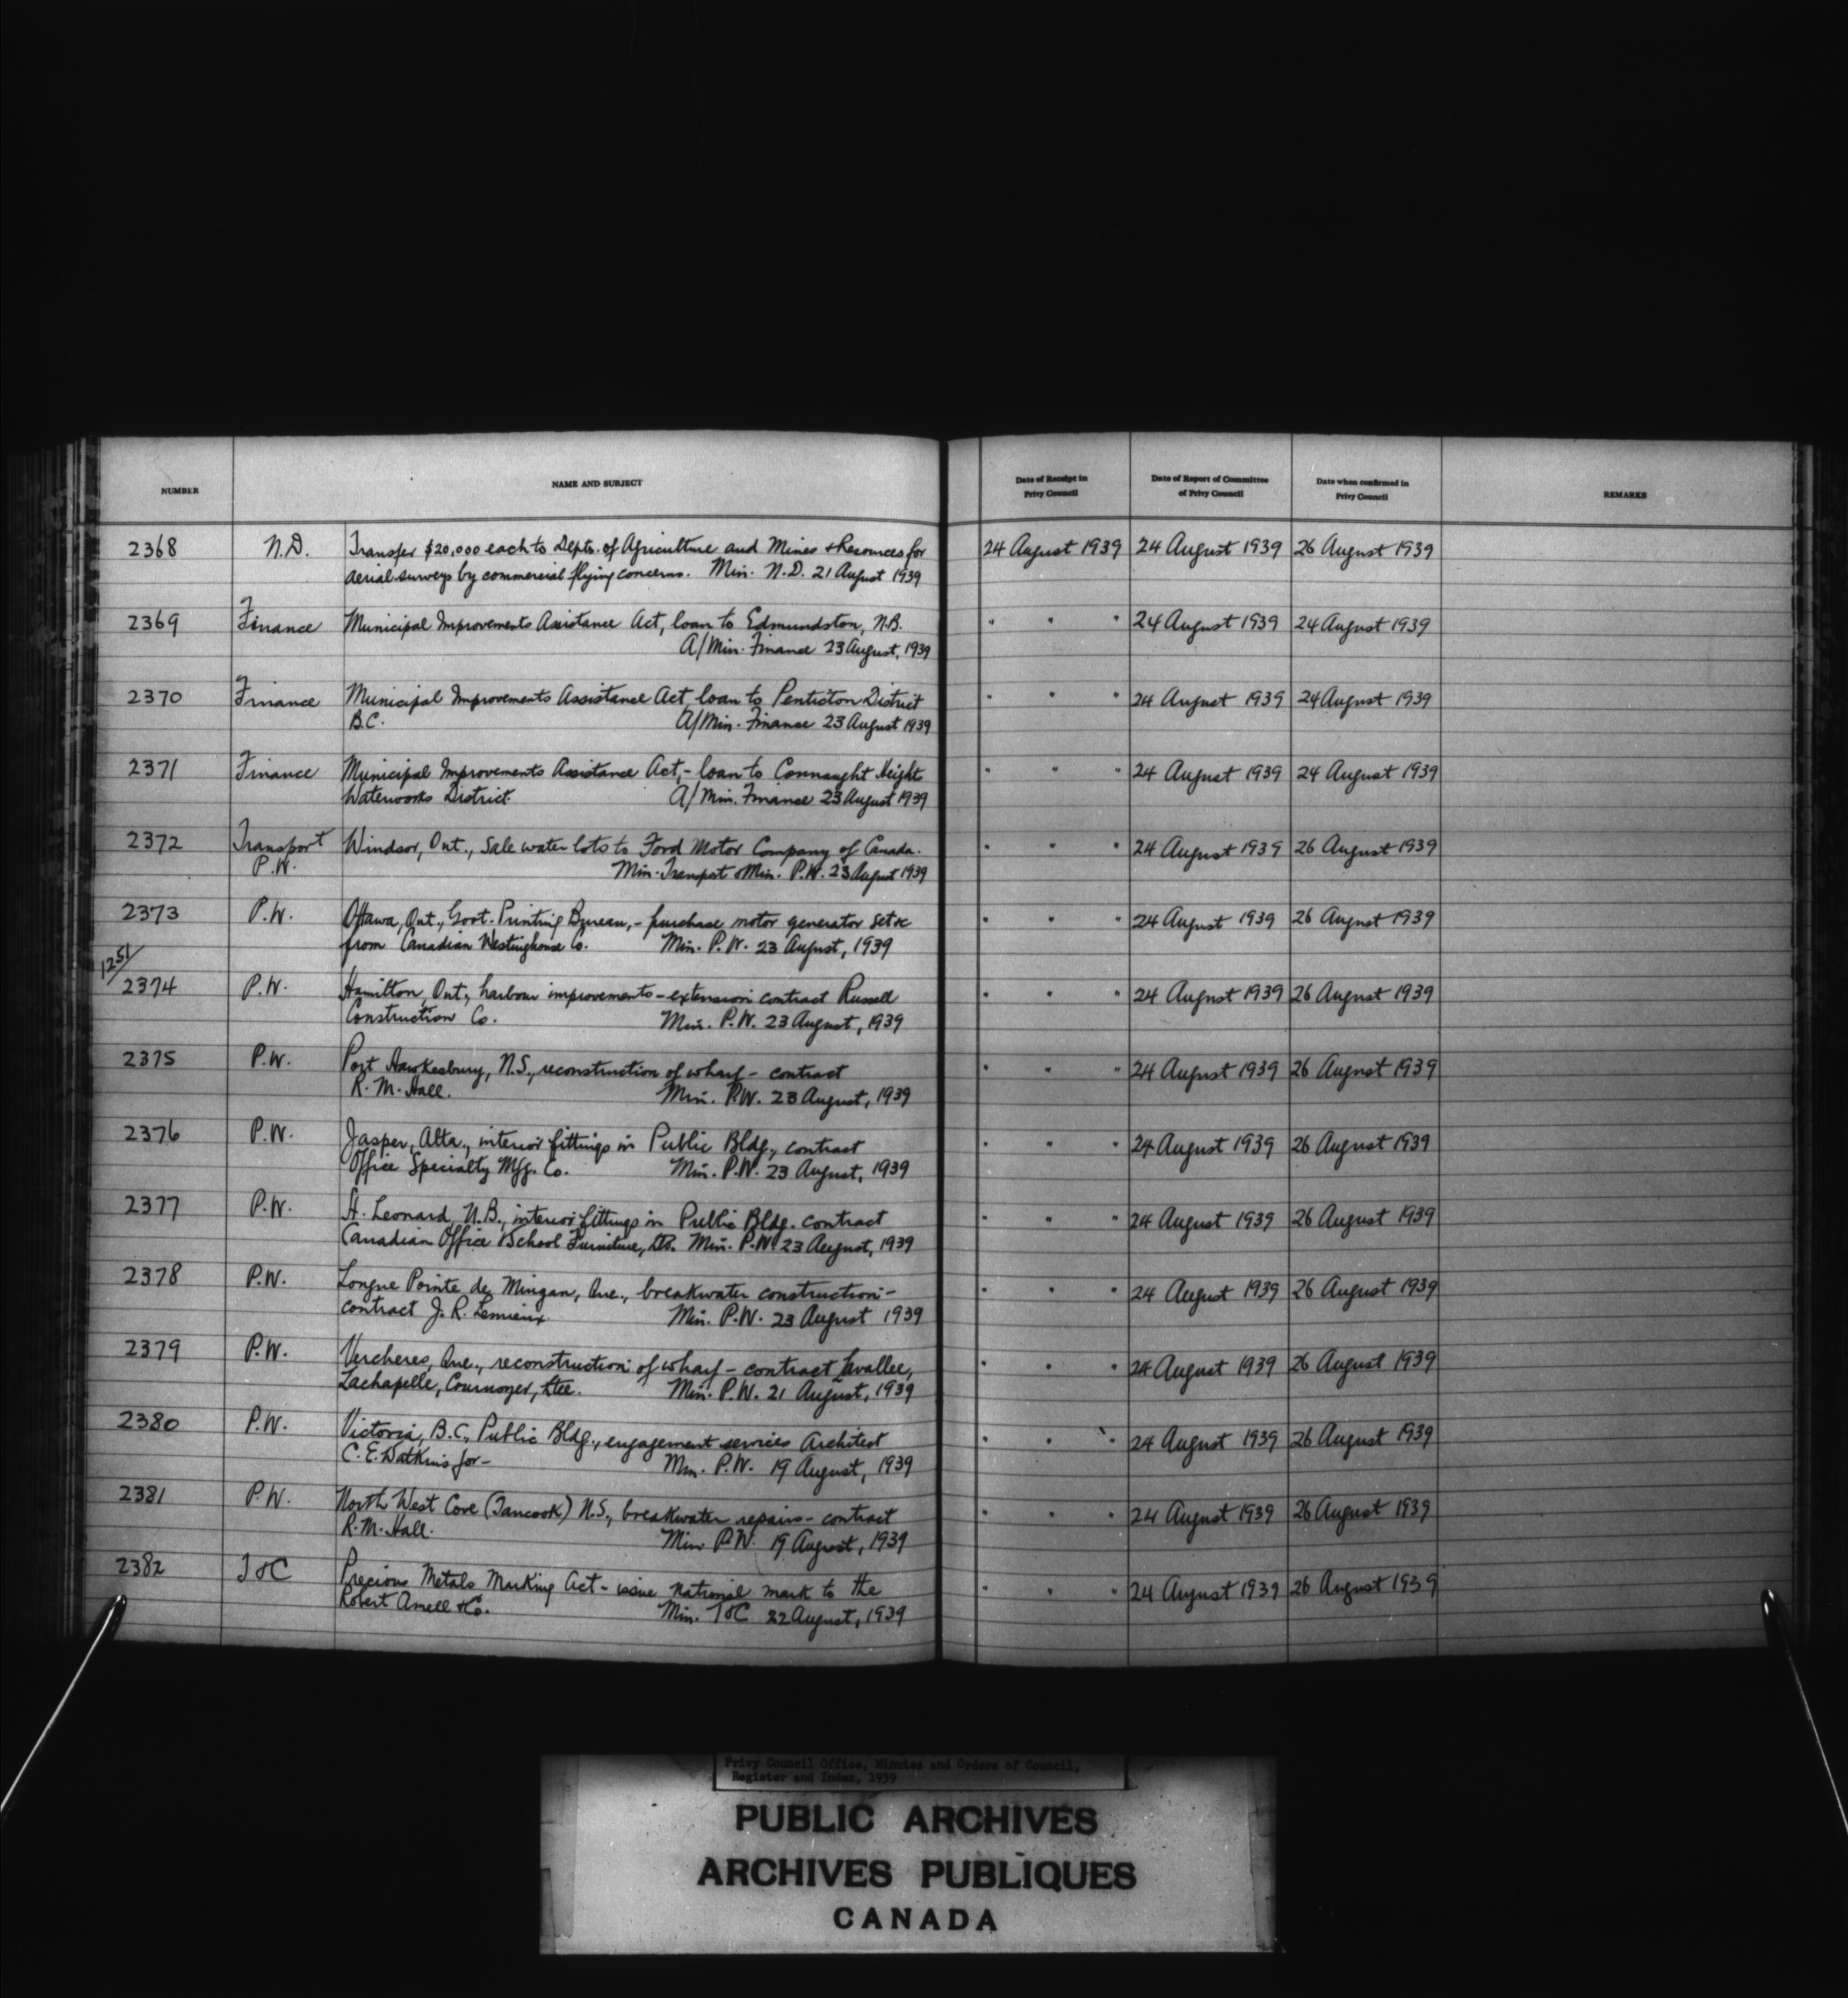 NUMBER NAME AND SUBJECT Date of Receipt in Privy Council Date of Report of Committee of Privy Council Date when confirmed in Privy Council REMARKS
2368 N.D. Transfer $20,000 each to Depts. of Agriculture and Mines & Resources for 24 August 1939 24 August 1939 26 August 1939
aerial surveys by commercial flying concerns. Min. N.D. 21 August 1939
2369 Finance Municipal Improvements Assistance Act, loan to Edmundston, N.B. " " " 24 August 1939 24 August 1939
A/Min. Finance 23 August, 1939
2370 Finance Municipal Improvements Assistance Act, loan to Penticton District " " " 24 August 1939 24 August 1939
B.C. A/Min. Finance 23 August 1939
2371 Finance Municipal Improvements Assistance Act, - loan to Connaught Height " " " 24 August 1939 24 August 1939
Waterworks District. A/Min. Finance 23 August 1939
2372 Transport Windsor, Ont., Sale water lots to Ford Motor Company of Canada. " " " 24 August 1939 26 August 1939
P.W. Min. Transport & Min. P.W. 23 August 1939
2373 P.W. Ottawa, Ont., Govt. Printing Bureau, - purchase motor generator set &c " " " 24 August 1939 26 August 1939
from Canadian Westinghouse Co. Min. P.W. 23 August, 1939
1251/
2374 P.W. Hamilton, Ont., harbour improvements - extension contract Russell " " " 24 August 1939 26 August 1939
Construction Co. Min. P.W. 23 August, 1939
2375 P.W. Port Hawkesbury, N.S., reconstruction of wharf - contract " " " 24 August 1939 26 August 1939
R. M. Hall. Min. P.W. 23 August, 1939
2376 P.W. Jasper, Alta., interior fittings in Public Bldg., contract " " " 24 August 1939 26 August 1939
Office Specialty Mfg. Co. Min. P.W. 23 August, 1939
2377 P.W. St. Leonard, N.B., interior fittings in Public Bldg. contract " " " 24 August 1939 26 August 1939
Canadian Office & School Furniture, Ltd. Min. P.W. 23 August, 1939
2378 P.W. Longue Pointe de Mingan, Que., breakwater construction - " " " 24 August 1939 26 August 1939
contract J. R. Lemieux Min. P.W. 23 August 1939
2379 P.W. Vercheres, Que., reconstruction of wharf - contract Lavallee, " " " 24 August 1939 26 August 1939
Lachapelle, Cournoyer, Ltee. Min. P.W. 21 August, 1939
2380 P.W. Victoria, B.C., Public Bldg., engagement services Architect " " " 24 August 1939 26 August 1939
C. E. Watkins for - Min. P.W. 19 August, 1939
2381 P.W. North West Cove (Tancook) N.S., breakwater repairs - contract " " " 24 August 1939 26 August 1939
R. M. Hall. Min P.W. 19 August, 1939
2382 T & C Precious Metals Marking Act - issue national mark to the " " " 24 August 1939 26 August 1939
Robert Amell & Co. Min. T & C 22 August, 1939
Privy Council Office, Minutes and Orders of Council,
Register and Index, 1939
PUBLIC ARCHIVES
ARCHIVES PUBLIQUES
CANADA